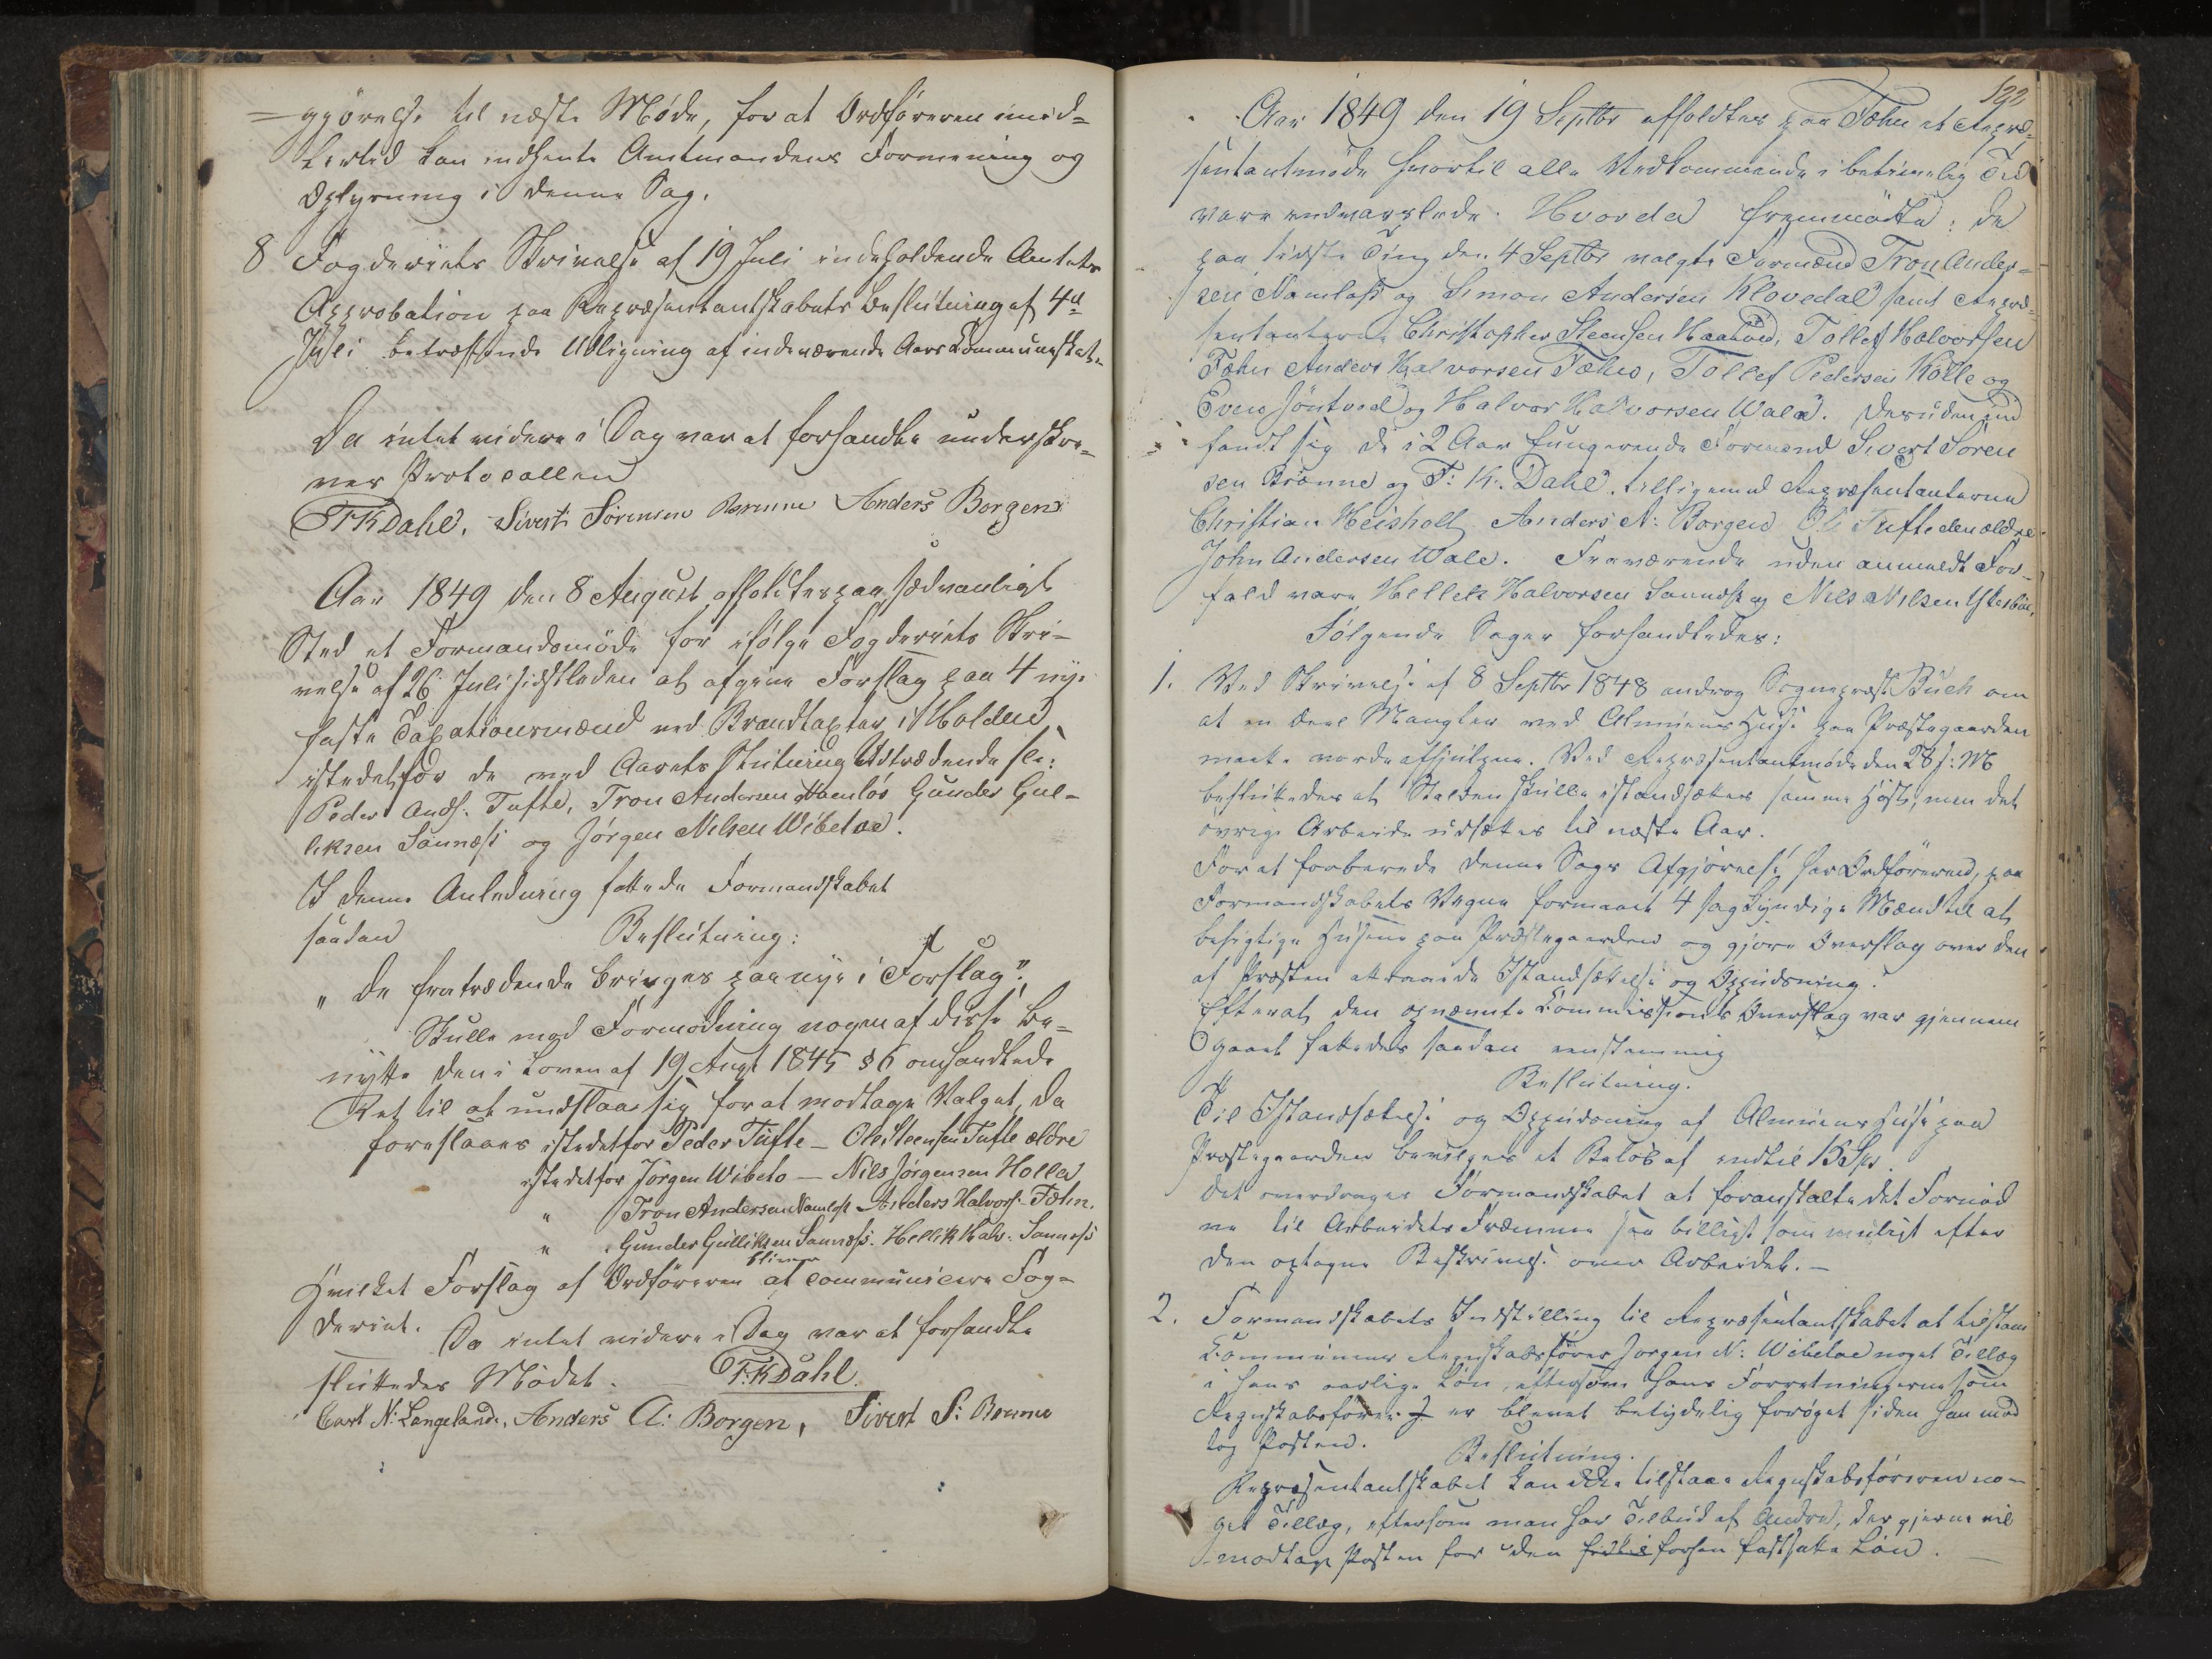 =ggjørelse til næste Møde, for at Ordføreren imid=
lertid kan indhente Amtmandens Formening og
Oplysning i denne Sag.
8 Fogderiets Skrivelse af 19 Juli indeholdende Amtets
Approbation paa Repræsentantskabets Beslutning af 4d
Juli betræffende Udligning af indeværende Aars Kommuneskat.
Da intet videre i Dag var at forhandle underskre=
ves Protocollen
F K Dahl. Sivert Sörensen Rønne Anders Borgen
Aar 1849 den 8 August afholdtes paa sædvanligt
Sted et Formandsmöde for ifölge Fogderiets Skri=
velse af 26 Juli sidstleden at afgive Forslag paa 4 nye
faste Taxationsmænd ved Brandtaxter i Holden
istedetfor de ved Aarets Slutning Udtrædende
Peder Ands. Tufte, Tron Andersen Namlös Gunder Gul=
liksen Sannæss og Jørgen Nilsen Wibetoe.
I denne Anledning fattede Formandskabet
saadan Beslutning:
"De fratrædende bringes paa nye i Forslag".
Skulle mod Formodning nogen af disse be=
nytte den i Loven af 19 Augt 1845 § 6 omhandlede
Ret til at undslaae sig for at modtage Valget, da
foreslaaes istedetfor Peder Tufte – Ole Steensen Tufte ældre
istedetfor Jörgen Wibeto — Nils Jørgensen Holla
" Tron Andersen Namløs Anders Halvors. Fæhn.
" Gunder Gulliksen Sannæss. Hellik Halv. Sannæss
bliver
Hvilket Forslag af Ordföreren at communicere Fog=
deriet. Da intet videre i Dag var at forhandle
sluttedes Mödet. F.K Dahl
Carl N: Langeland. Anders A: Borgen, Sivert S: Rønne
192
Aar 1849 den 19 Septbr afholdtes paa Fæhn et Repræ=
sentantmöde hvortil alle Vedkommende i betimelig Tid
vare indvarslede. Hvorda fremmödte: de
paa sidste Ting den 4 Septbr valgte Formænd Tron Ander=
sen Namlöss og Simon Andersen Klovedal samt Repræ=
sentanterne Christopher Steensen Haatved, Tollef Halvorsen
Fæhn Anders Halvorsen Fæhn, Tollef Pedersen Kölle og
Even Jöntved og Halvor Halvorsen Wala. Desuden ind
fandt sig de i 2 Aar fungerende Formænd Sivert Sören
sen Rönne og F: K: Dahl, tilligemed Repræsentanterne
Christian Heisholt Anders A: Borgen Ole Tufte den ældre
John Andersen Wale. Fraværende uden anmeldt For=
fald vare Hellek Halvorsen Sannæss og Nils Nilsen Ytterböe.
Følgende Sager forhandledes:
1. Ved Skrivelse af 8 Septbr 1848 androg Sogneprest Buch om
at en deel Mangler ved Almuens Huse paa Præstegaarden
maatte vorde afhjulpne. Ved Repræsentantmöde den 28 s: M
besluttedes at Stalden skulle istandsættes samme Höst, men det
övrige Arbeide udsættes til næste Aar.
For at forberede denne Sags Afgjörelse har Ordföreren, paa
Formandskabets Vegne formaaet 4 sagkyndige Mænd til at
besigtige Husene paa Præstegaarden og gjøre Overslag over den
af Præsten attraaede Istandsættelse og Oppudsning.
Efterat den opnævnte Commissions Overslag var gjennem
gaaet fattedes saadan eenstemmig
Beslutning.
Til Istandsættelse og Oppudsning af Almuens Huse paa
Præstegaarden bevilges et Belöb af indtil 15 Sp.
Det overdrages Formandskabet at foranstalte det Fornød
ne til Arbeidets Fremme saa billigt som muligt efter
den optagne Beskrivelse over Arbeidet. —
2. Formandskabets Indstilling til Repræsentantskabet at tilstaae
Kommunens Regnskabsfører Jørgen N: Wibetoe noget Tillæg
i hans aarlige Lön, eftersom hans Forretningerne som
Regnskabsfører er blevet betydelig forøget siden han mod
tog Posten. Beslutning.
Repræsentantskabet kan ikke tilstaae Regnskabsføreren no=
get Tillæg, eftersom man har Tilbud af Andre, der gjerne vil
modtage Posten for den forhen fastsatte Lön. —